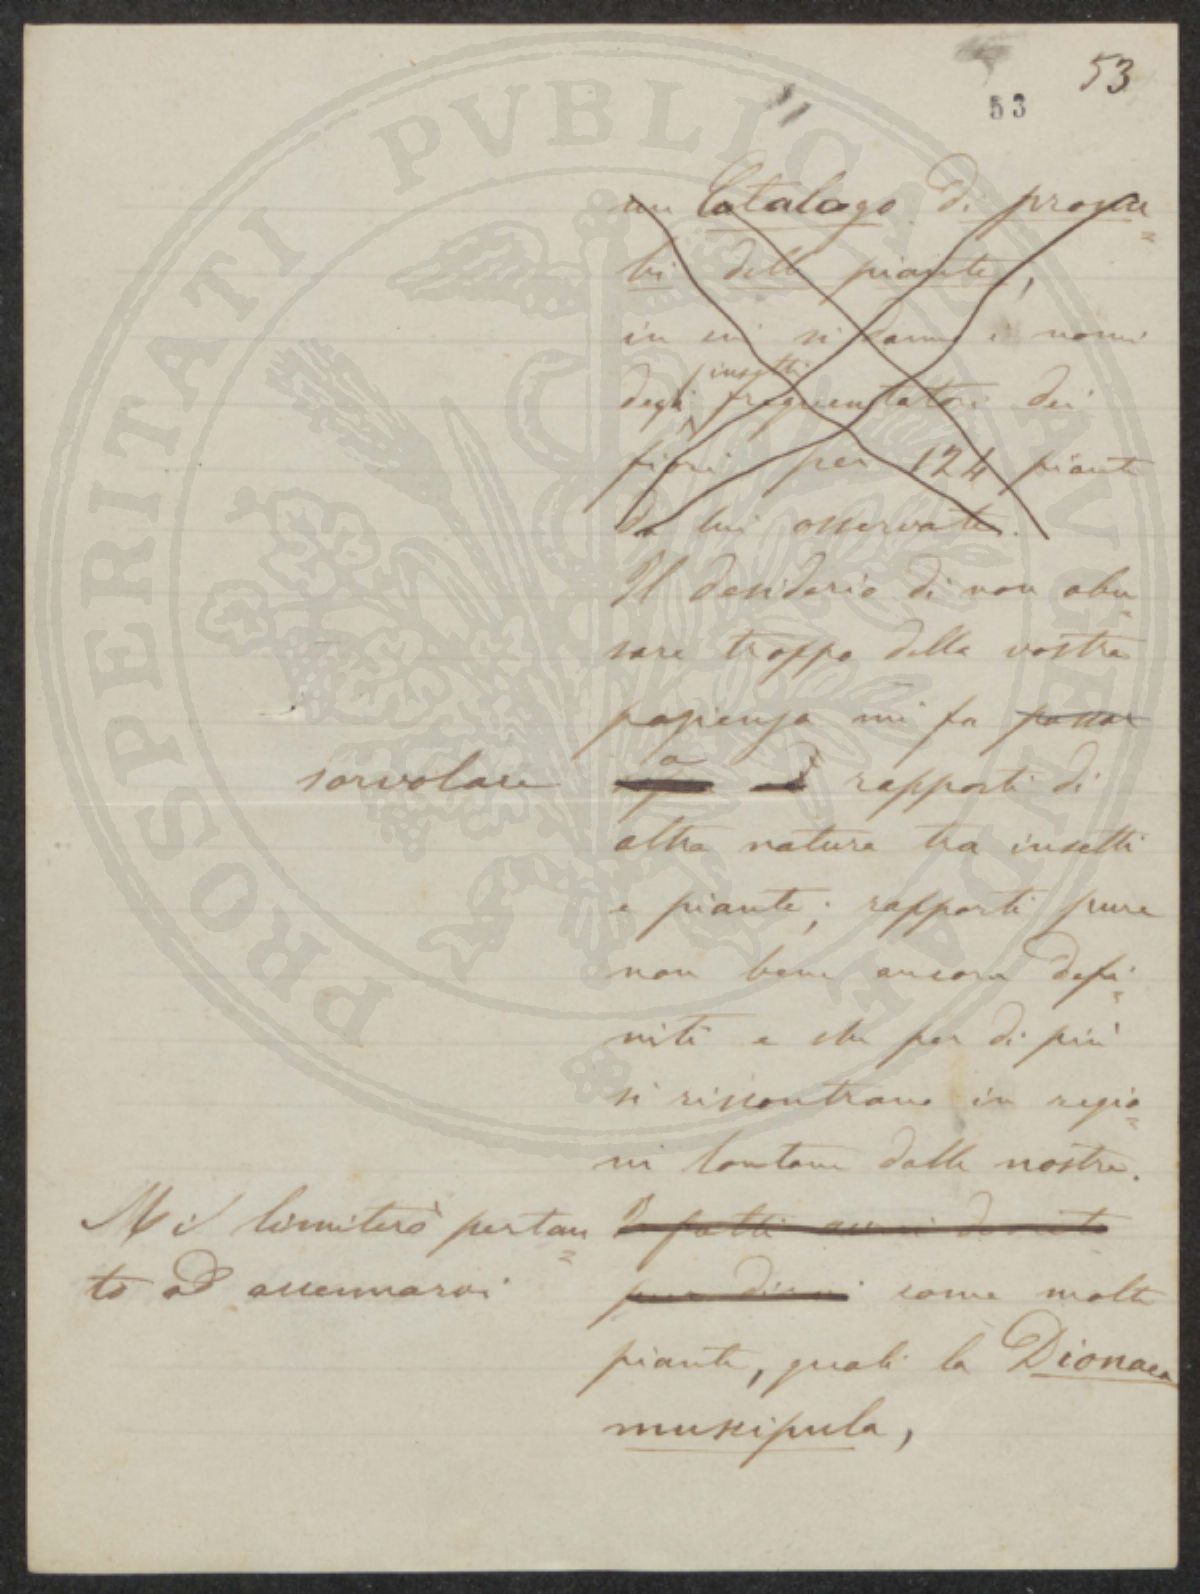 53
53
un Catalogo di pronu=
bi delle piante,
in cui si danno i nomi
degli insetti frequentatori dei
fiori per 124 piante
da lui osservate.
Il desiderio di non abu=
sare troppo della vostra
pazienza mi fa passar
sorvolare a rapporti di
altra natura tra insetti
e piante; rapporti pure
non bene ancora defi=
niti e che per di più
si riscontrano in regio=
ni lontane dalle nostre.
Mi limiterò pertan=
to ad accennarvi
come molte
piante, quali la Dionaea
muscipula,
PROSPERITATI PVBLICAE AVGENDAE